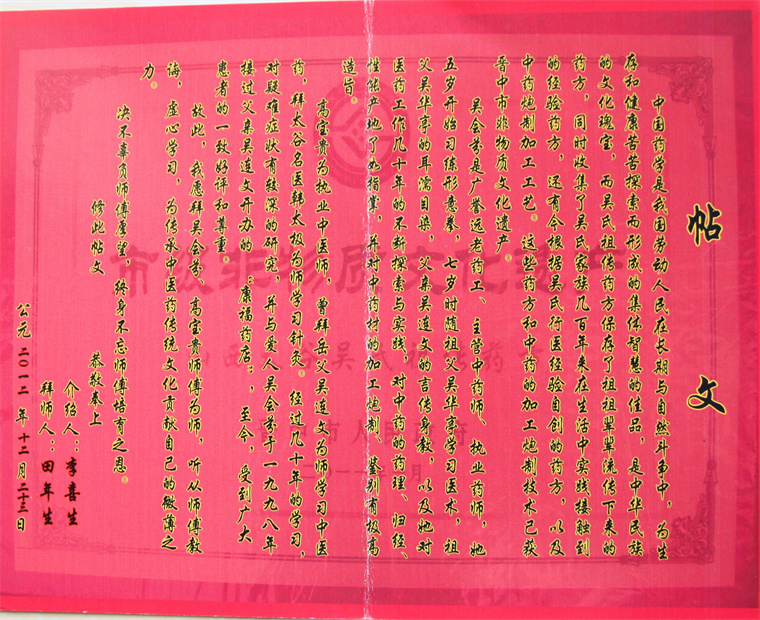 帖文
中国药学是我国劳动人民在长期与自然斗争中，为生
存和健康苦苦探索而形成的集体智慧的佳品，是中华民族
的文化瑰宝，而吴氏祖传药方保存了祖祖辈辈流传下来的
药方，同时收集了吴氏家族几百年来在生活中实践接触到
的经验药方，还有今根据吴氏行医经验自创的药方，以及
中药炮制加工工艺。这些药方和中药的加工炮制技术已获
晋中市非物质文化遗产。
吴会芬是广誉远老药工、主管中药师、执业药师，她
五岁开始习练形意拳，七岁时随祖父吴华亭学习医术，祖
父吴华亭的耳濡目染，父亲吴连文的言传身教，以及她对
医药工作几十年的不断探索与实践，对中药的药理、归经、
性能产地了如指掌，并对中药材的加工炮制、鉴别有极高
造旨。
高宝贵为执业中医师，曾拜岳父吴连文为师学习中医
药，拜太谷名医韩太极为师学习针灸。经过几十年的学习，
对疑难症状有较深的研究，并与爱人吴会芬于一九九八年
接过父亲吴连文开办的“康福药店”，至今，受到广大
患者的一致好评和尊重。
故此，我愿拜吴会芬、高宝贵师傅为师，听从师傅教
诲，虚心学习，为传承中医药传统文化贡献自己的微薄之
力。
决不辜负师傅愿望，终身不忘师傅培育之恩。
修此帖文
恭敬奉上
介绍人：李喜生
拜师人：田年生
公元二〇一二年十二月二十三日
市级非物质文化遗产